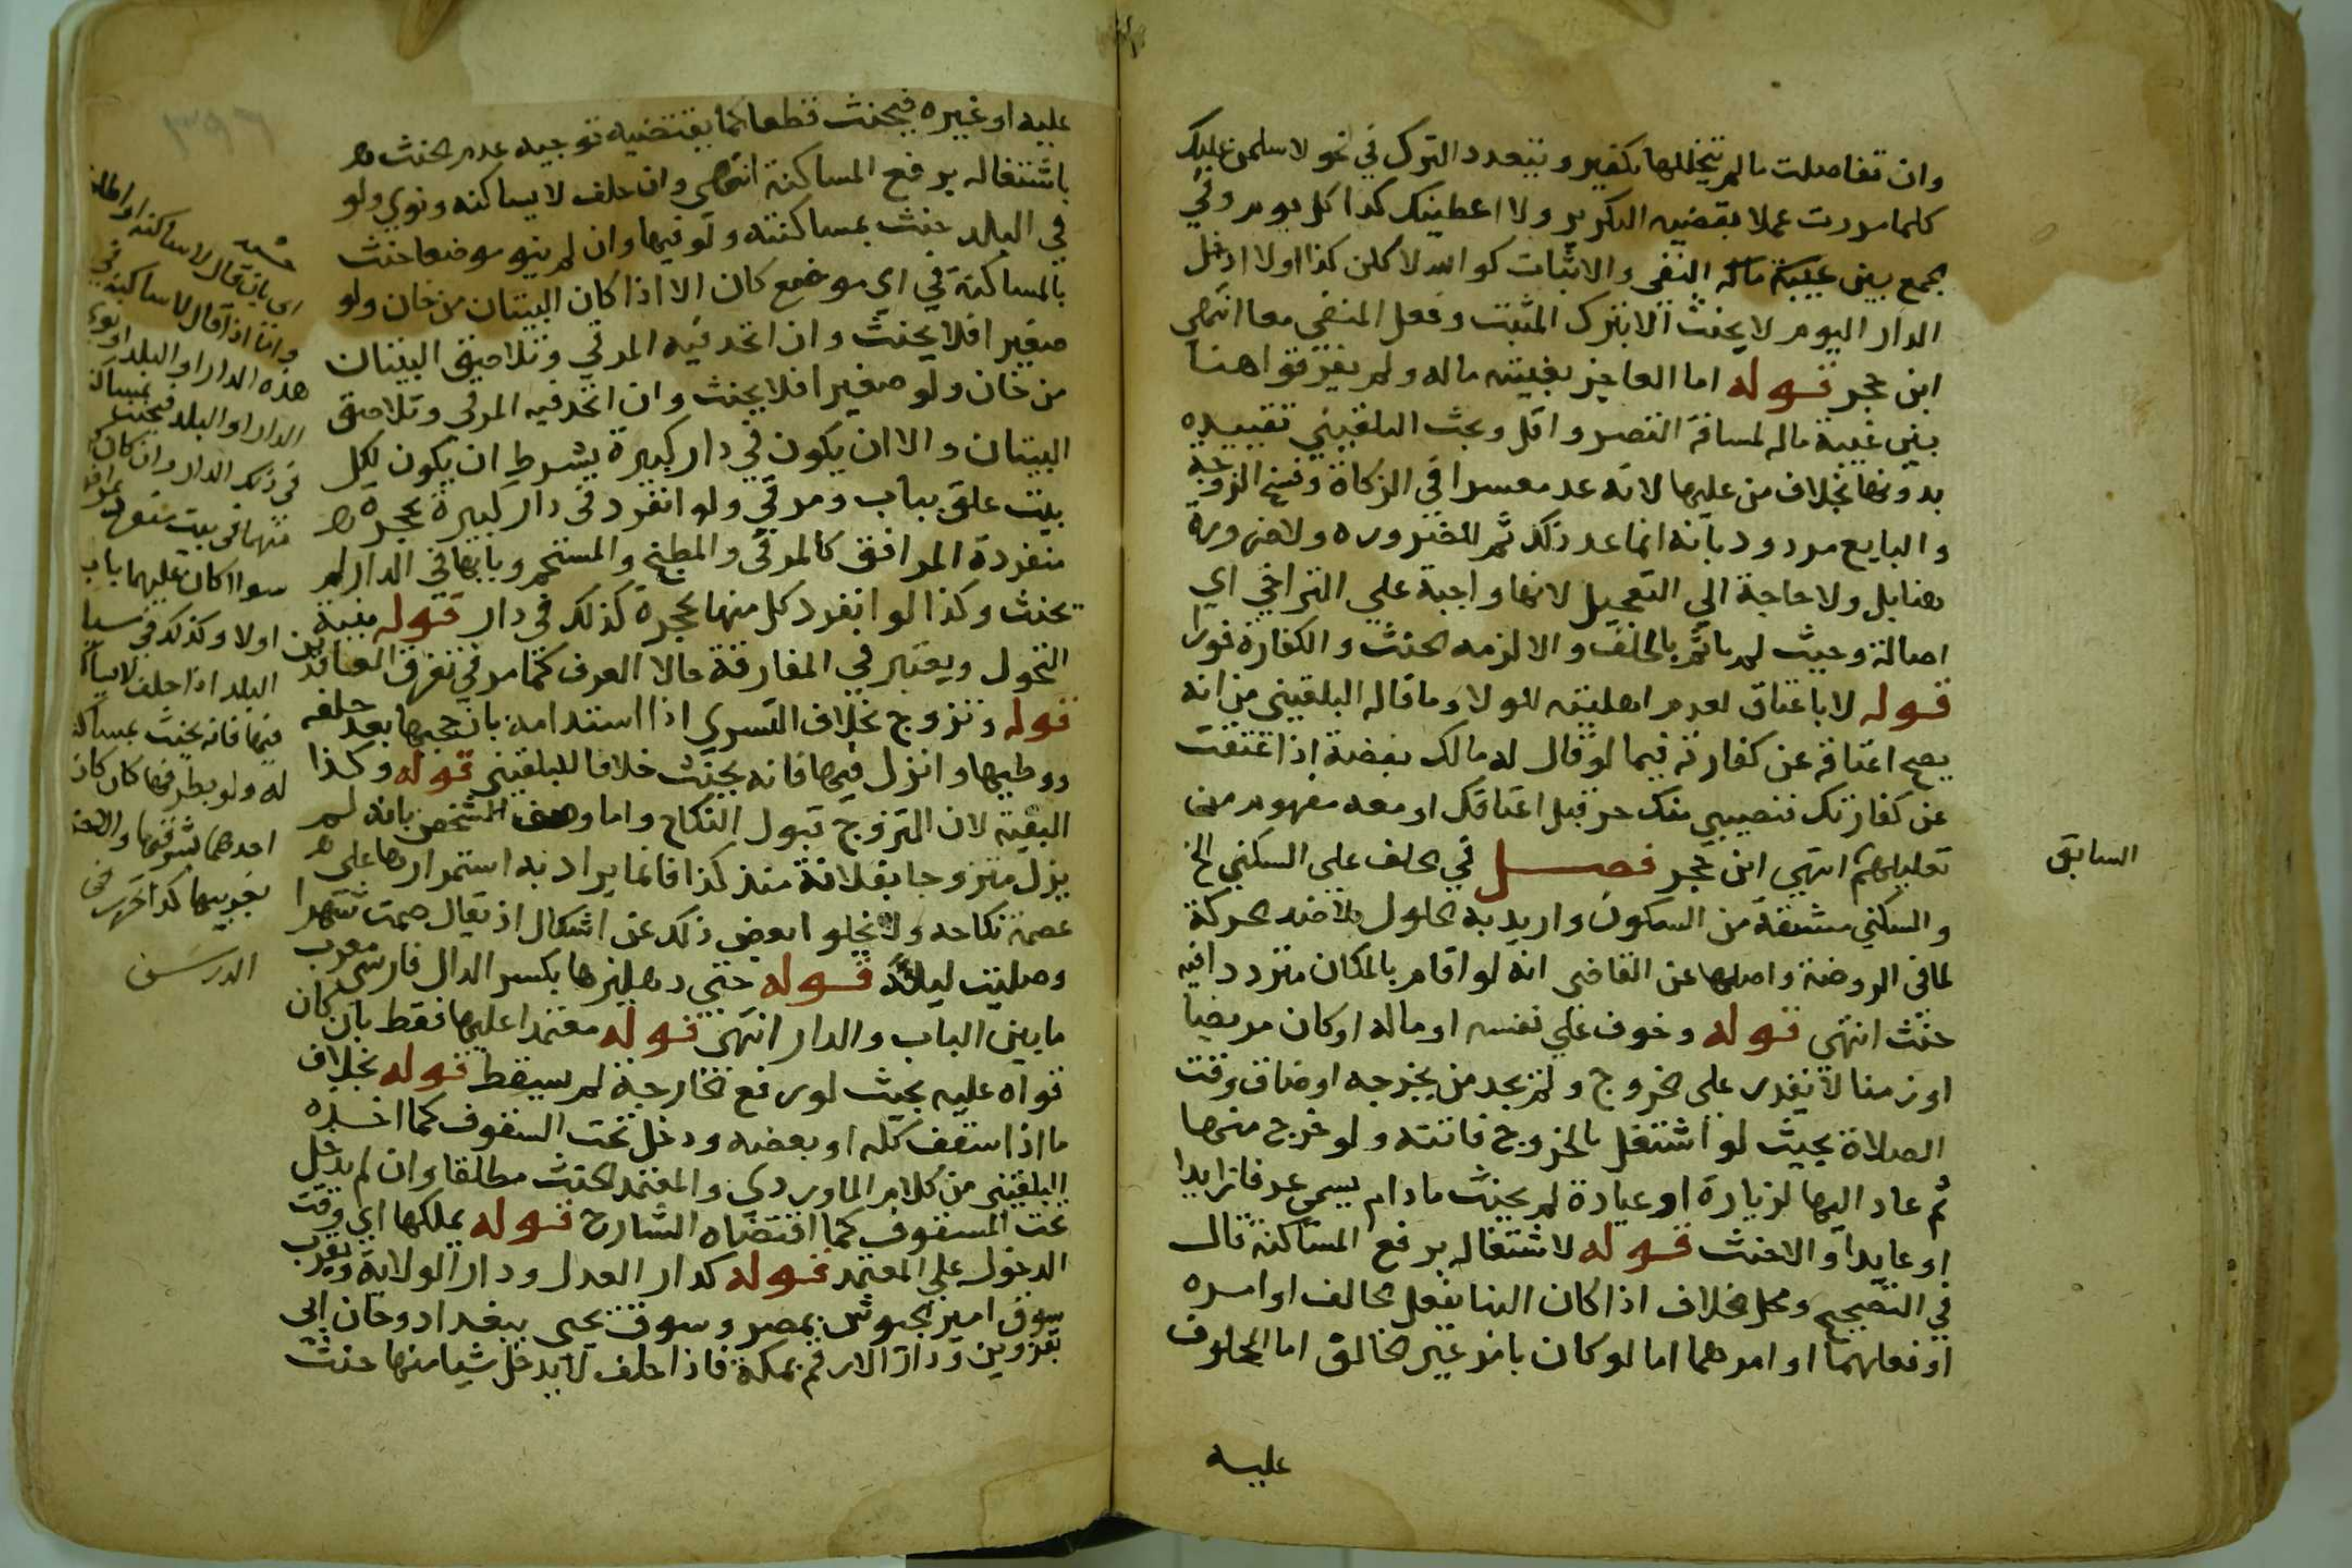 وان تفاصلت ما لم يتخللها تكفير ويتعدد البرك في نحو لاسلمن عليك
كلما مررت عملا بقضيه التكرير ولا اعطينك كذا كل يوم وفي
الجمع بين النفي والاثبات كوالله لاكلن كذا اولا ادخل
الدار اليوم لا يحنث الا بترك المثبت وفعل المنفي معا انتهى
ابن حجر قوله اما العاجز بغيبته ماله ولم يفرقوا هنا
بين غيبة ماله لمسافة القصر واقل وبحث البلقيني تقييده
بدونها بخلاف من عليها لانه عد معسرا في الزكاة وفسخ الزوجة
والبايع مردود بانه انما عد ذلك ثم للضروره ولا ضرورة
هنا بل ولا حاجة الي التعجيل لانها واجبة علي التراخي اي
اصالة وحيث لم ياثم بالحلف والا لزمه الحنث والكفارة فورا
قوله لا باعتاق لعدم اهليته للولا وما قاله البلقيني من انه
يصح اعتاقه عن كفارته فيما لو قال له مالك بعضه اذا عتقت
عن كفارتك فنصيبي منك حر قبل اعتاقك او معه مفهوم من
تعليلهم انتهي ابن حجر فصل في الحلف علي السكني الخ
السابق
والسكني مشتقة من السكون واريد به الحلول لا ضد الحركة
لما في الروضة واصلها عن القاضي انه لو اقام بالمكان مترددا فيه
حنث انتهي قوله وخوف علي نفسه او ماله او كان مريضا
او زمنا لا يقدر علي الخروج ولم يجد من يخرجه او ضاق وقت
الصلاة بحيث لو اشتغل بالخروج فاتته ولو خرج منها
ثم عاد اليها لزيارة او عيادة لم يحنث ما دام يسمي عرفا زايرا
او عايدا والا حنث قوله لاشتغاله برفع المساكنة قال
في التصحيح ومحل الخلاف اذا كان البنا بفعل الحالف او امره
او فعلهما او امرهما اما لو كان بامر غير الحالف اما المحلوف
عليه
عليه او غيره فيحنث قطعا كما يقتضيه توجيه عدم الحنث
باشتغاله برفع المساكنة انتهى وان حلف لا يساكنه ونوي ولو
في البلد حنث بمساكنته ولو فيها وان لم ينو موضعا حنث
بالمساكنة في اي موضع كان الا اذا كان البيتان من خان ولو
صغيرا فلا يحنث وان اتحد فيه المرقي وتلاصق البيتان
من خان ولو صغيرا فلا يحنث وان اتحد فيه المرقي وتلاصق
البيتان والا ان يكون في دار كبيرة بشرط ان يكون لكل
بيت غلق بباب ومرقي ولو انفرد في دار كبيرة بحجرة
منفردة المرافق كالمرقي والمطبخ والمستحم وبابها في الدار لم
يحنث وكذا لو انفرد كل منها بحجرة كذلك في دار قوله بنية
التحول ويعتبر في المفارقة حالا العرف كما مر في تفرق المعاقدين
قوله وتزوج بخلاف التسري اذا استدامه بان حجبها بعد حلفه
ووطيها وانزل فيها فانه يحنث خلافا للبلقيني قوله وكذا
البقية لان التزوج قبول النكاح واما وصف الشخص بانه لم
يزل متزوجا بفلانة منذ كذا فانما يراد به استمرارها على
عصمة نكاحه ولا يخلوا بعض ذلك عن اشكال اذ يقال صمت شهرا
وصليت ليلة قوله حتي دهليزها بكسر الدال فارسي معرب
ما بين الباب والدار انتهي قوله معتمدا عليها فقط بان كان
قواه عليه بحيث لو رفع الخارجة لم يسقط قوله بخلاف
ما اذا سقف كله او بعضه ودخل تحت السقوف كما اخذه
البلقيني من كلام الماوردي والمعتمد الحنث مطلقا وان لم يدخل
تحت المسقوف كما اقتضاه الشارح قوله يملكها اي وقت
الدخول علي المعتمد قوله كدار العدل ودار الولاية وبقرب
سوق امير الجيوش بمصر وسوق يحيى ببغداد وخان ابي
بقزوين ودار الارقم بمكة فاذا حلف لا يدخل شيا منها حنث
اي بان قال لا ساكنه واطلق
واما اذا قال لا ساكنه في
هذه الدار او البلد او نوي
الدار او البلد فيحنث بمساكنة
في ذلك الدار وان كان
منهما في بيت منفرد
سوا كان عليهما باب
اولا وكذلك في سيا
البلد اذا حلف لا يساكنه
فيها فانه يحنث بمساكنة
له ولو بطرفها كان كان
احدهما بشرقيها والاخر
بغربيها كذا تحرر في
الدرس
٣٩٦